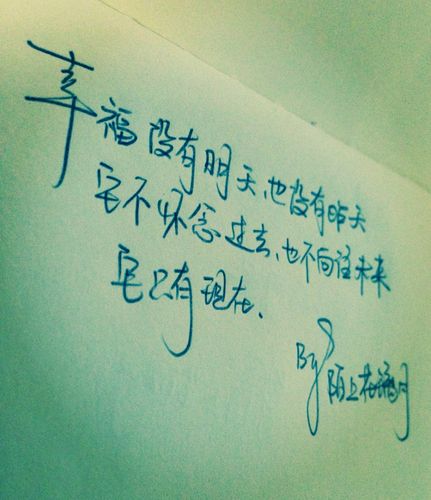 幸福没有明天、也没有昨天
它不怀念过去、也不向往未来
它只有现在.
By 陌上